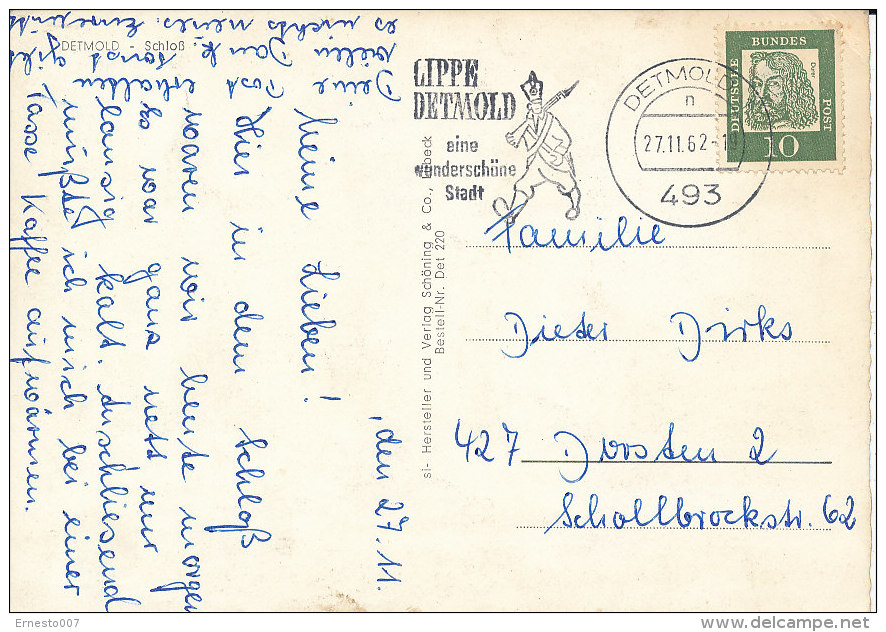 DETMOLD - Schloß
, den 27.11.
Meine Lieben!
Hier in dem Schloß
waren wir heute morgen
es war ganz nett nur
lausig kalt. Anschliesend
mußte ich mich bei einer
Tasse Kaffee aufwärmen.
Deine Post erhalten
vielen Dank. Sonst gibt
es nichts neues.
si- Hersteller und Verlag Schöning & Co., Lübeck
Bestell-Nr. Det 220
LIPPE
DETMOLD
eine
wunderschöne
Stadt
DETMOLD
n
27.11.62
493
DEUTSCHE
BUNDES
POST
Dürer
10
Familie
Dieter Dirks
427 Dorsten 2
Schollbrockstr. 62
Ernesto007
www.delcampe.net